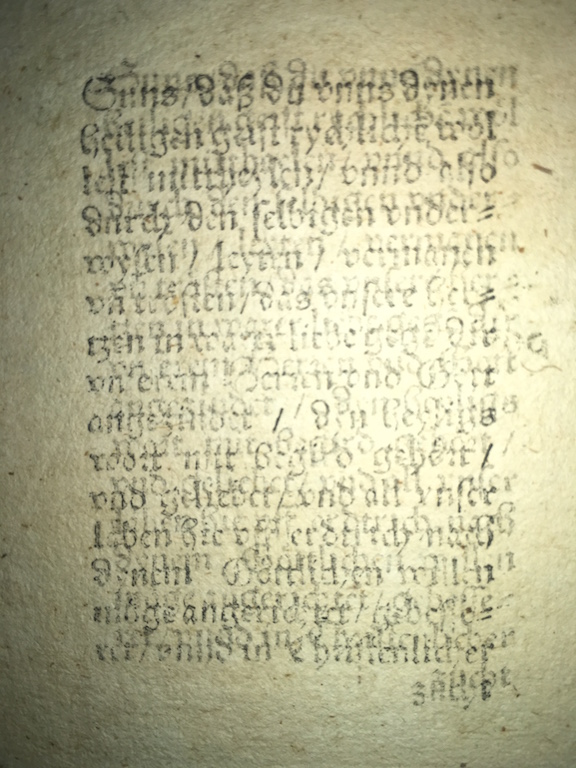 Suns/daß du vnns dynen
heiligen geist rychliche wöl
lest mittheylen/ vnnd also
durch den selbigen vnder⸗
wysen/ leyten/ vermanen
vñ trösten/das vnsere her⸗
tzen in waarer liebe gegẽ dir
vñ dem Herren vnd Gott
angezündet / den heyligs
wort mit begird gehört/
vnd geliebet/vnd all vnser
läben hie vff erdtrich nach
dynem Göttlichen willen
möge angericht/ gebesse⸗
ret/vnnd in Christenlicher
zücht